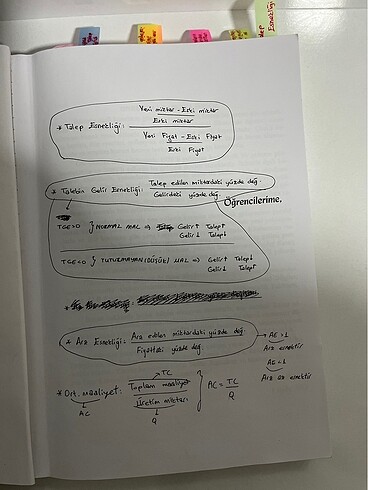 Yeni miktar - Eski miktar
Eski miktar
* Talep Esnekliği:
Yeni Fiyat - Eski Fiyat
Eski Fiyat
* Talebin Gelir Esnekliği: Talep edilen miktardaki yüzde değ.
Gelirdeki yüzde değ.
Öğrencilerime.
TGE>0 } NORMAL MAL => Gelir↑ Talep↑
Gelir↓ Talep↓
TGE<0 } TUTUNMAYAN (DÜŞÜK) MAL => Gelir↑ Talep↓
Gelir↓ Talep↑
* Arz Esnekliği: Arz edilen miktardaki yüzde değ.
Fiyattaki yüzde değ.
Arz esnektir
Arz az esnektir
TC
* Ort. maaliyet: Toplam maaliyet
Üretim miktarı
} AC = TC
Q
AC
Q